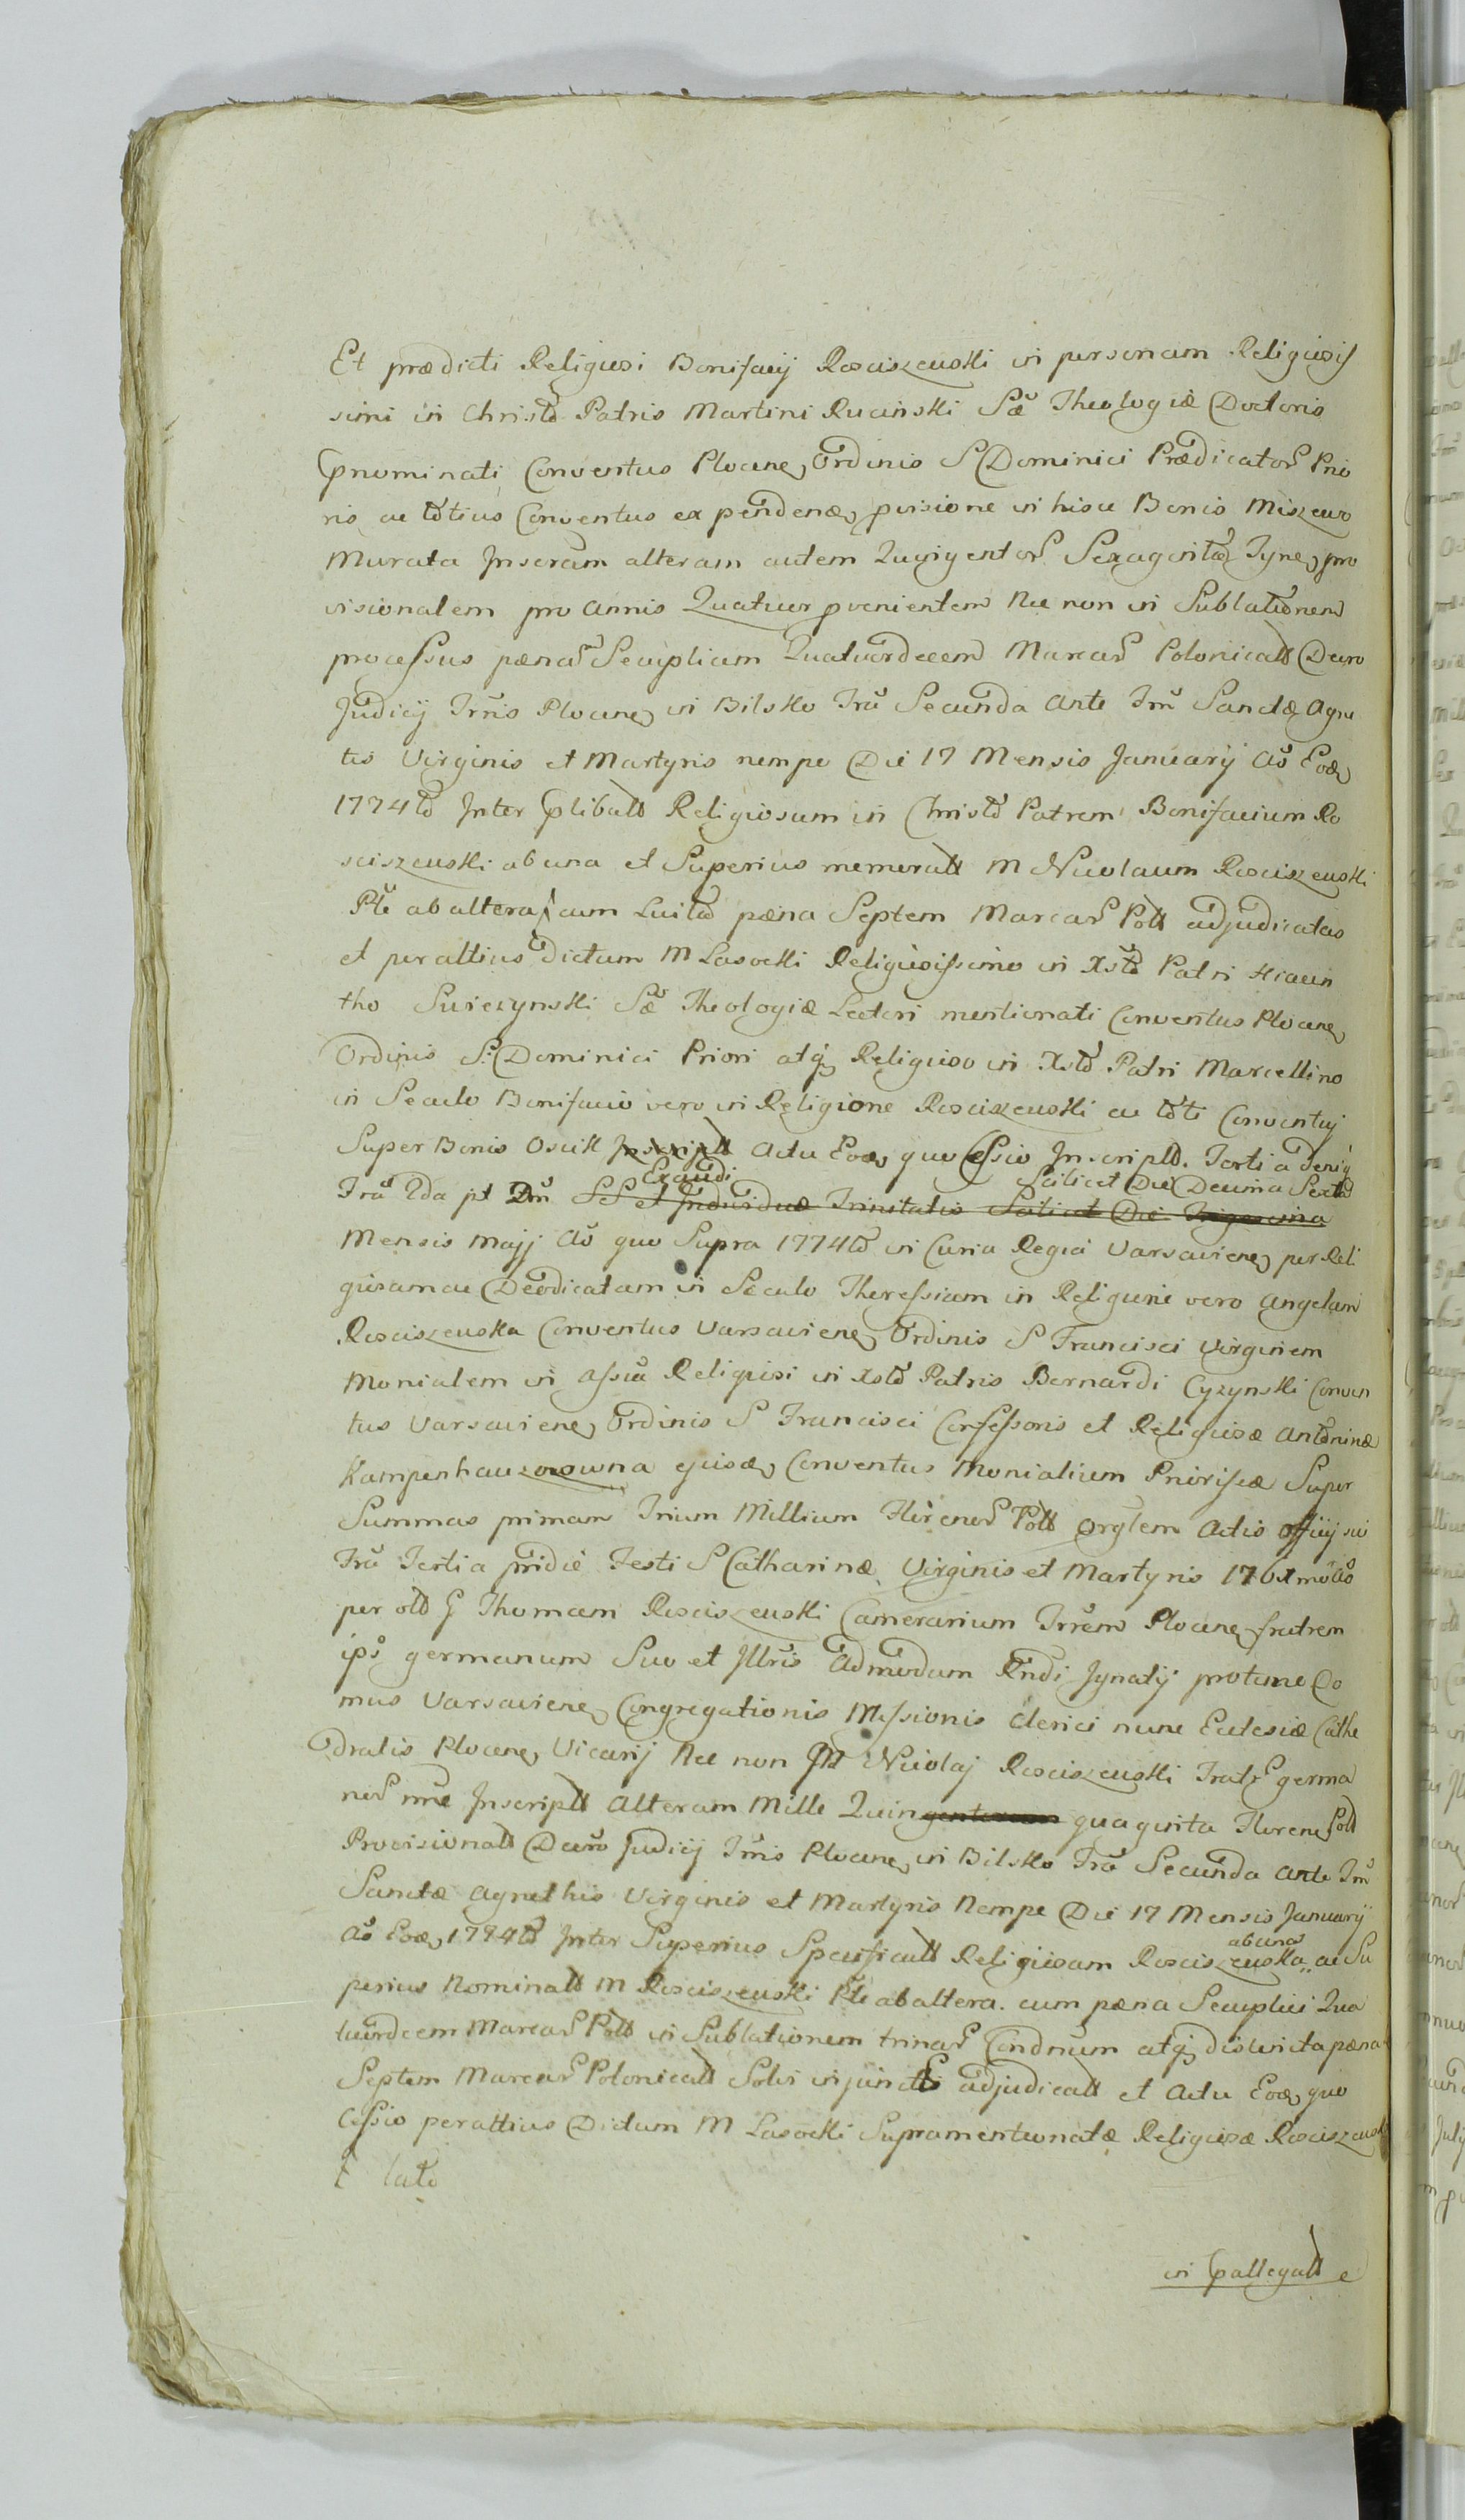 Et prædicti Religiosi Bonifacij Rosciszewski in personam Religiosis
simi in Christo Patris Martini Rucinski Sæ Theologiæ Doctoris
pnominati Conventus Plocen, Ordinis S Dominici Prædicator Prio
ris ac totius Conventus ex pendenæ, pvisione in hisce Bonis Miszewo
Murata Inscram alteram autem Quingentor Sexaginta Tyne, pro
visionalem pro Annis Quatuor pvenientem Nec non in Sublationem
processus pænar Secuplicam Quatuordecem Marcar Polonicall Decro
Judicij Trris Plocen, in Bilsko Fra Secunda Ante Fm Sanctæ Agne
tis Virginis et Martyris nempe Die 17 Mensis January Ao Eod,
1774to Inter plibatt Religiosum in Christo Patrem Bonifacium Ro
sciszewski ab una et Superius memoratt M Nicolaum Rosciszewski
Pte ab altera cum Luito pæna Septem Marcar Poll adjudicatas
et per altius dictum M Lasocki Religiosissimo in Xsto Patri Hiacin
tho Swiezynski Sæ Theologiæ Lectori mentionati Conventus Plocen,
Ordinis S. Dominici Priori atq Religioso in Xsto Patri Marcellino
in Seculo Bonifacio vero in Religione Rosciszewski ac toti Conventuj
Super Bonis Osiek Inscriptt Actu Eod, quo Cessio Inscriptt. Tertia deniq
Exaudi Scilicet Die Decima Sexta
Fra 2da pt Dm SS et Individuæ Trinitatis Scilicet Die Trigesima
Mensis Majj Ao quo Supra 1774to in Curia Regia Varsavien, per Reli
giosam ac Deodicatam in Seculo Theressiam in Religione vero Angelam
Rosciszewska Conventus Varsavien, Ordinis S Francisci Virginem
Monialem in Assia Religiosi in Xsto Patris Bernardi Cyzynski Conven
tus Varsavien, Ordinis S Francisci Confessoris et Religiosæ Antoninæ
Kampenhauzowna ejusd, Conventus Monialium Priorissæ Super
Summas primam Trium Millium Florenor Poll orglem Actis Officij sui
Fra Tertia pridie Festi S Catharinæ Virginis et Martyris 176
per olb G Thomam Rosciszewski Camerarium Trrem Plocen, fratrem
ips germanum Suo et Illris Admodum Rndi Ignatij protunc Do
mus Varsavien, Congregationis Missionis Clerici nunc Eclesiæ Cathe
dralis Plocen, Vicarij Nec non M Nicolaj Rosciszewski Fratr germa
nor nne Inscriptt Alteram Mille Quingentorum quaginta Floren Poll
Provisionall Decro Judicij Trris Plocen, in Bilsko Fra Secunda Ante Fm
Sanctæ Agnethis Virginis et Martyris Nempe Die 17 Mensis January
ab una
Ao Eod, 1774to Inter Superius Specificatt Religiosam Rosciszewska, ac Su
perius Nominatt M Rosciszewski Pte ab altera. cum pæna Secuplici Qua
tuordecem Marcar Poll in Sublationem trinar Condnum atq distincta pæna
Septem Marcar Polonicall Solvi injuncts adjudicatt et Actu Eod, quo
Cessio per altius Dictum M Lasocki Supramentionatæ Religiosæ Rosciszewsk
lato
in pallegatt e